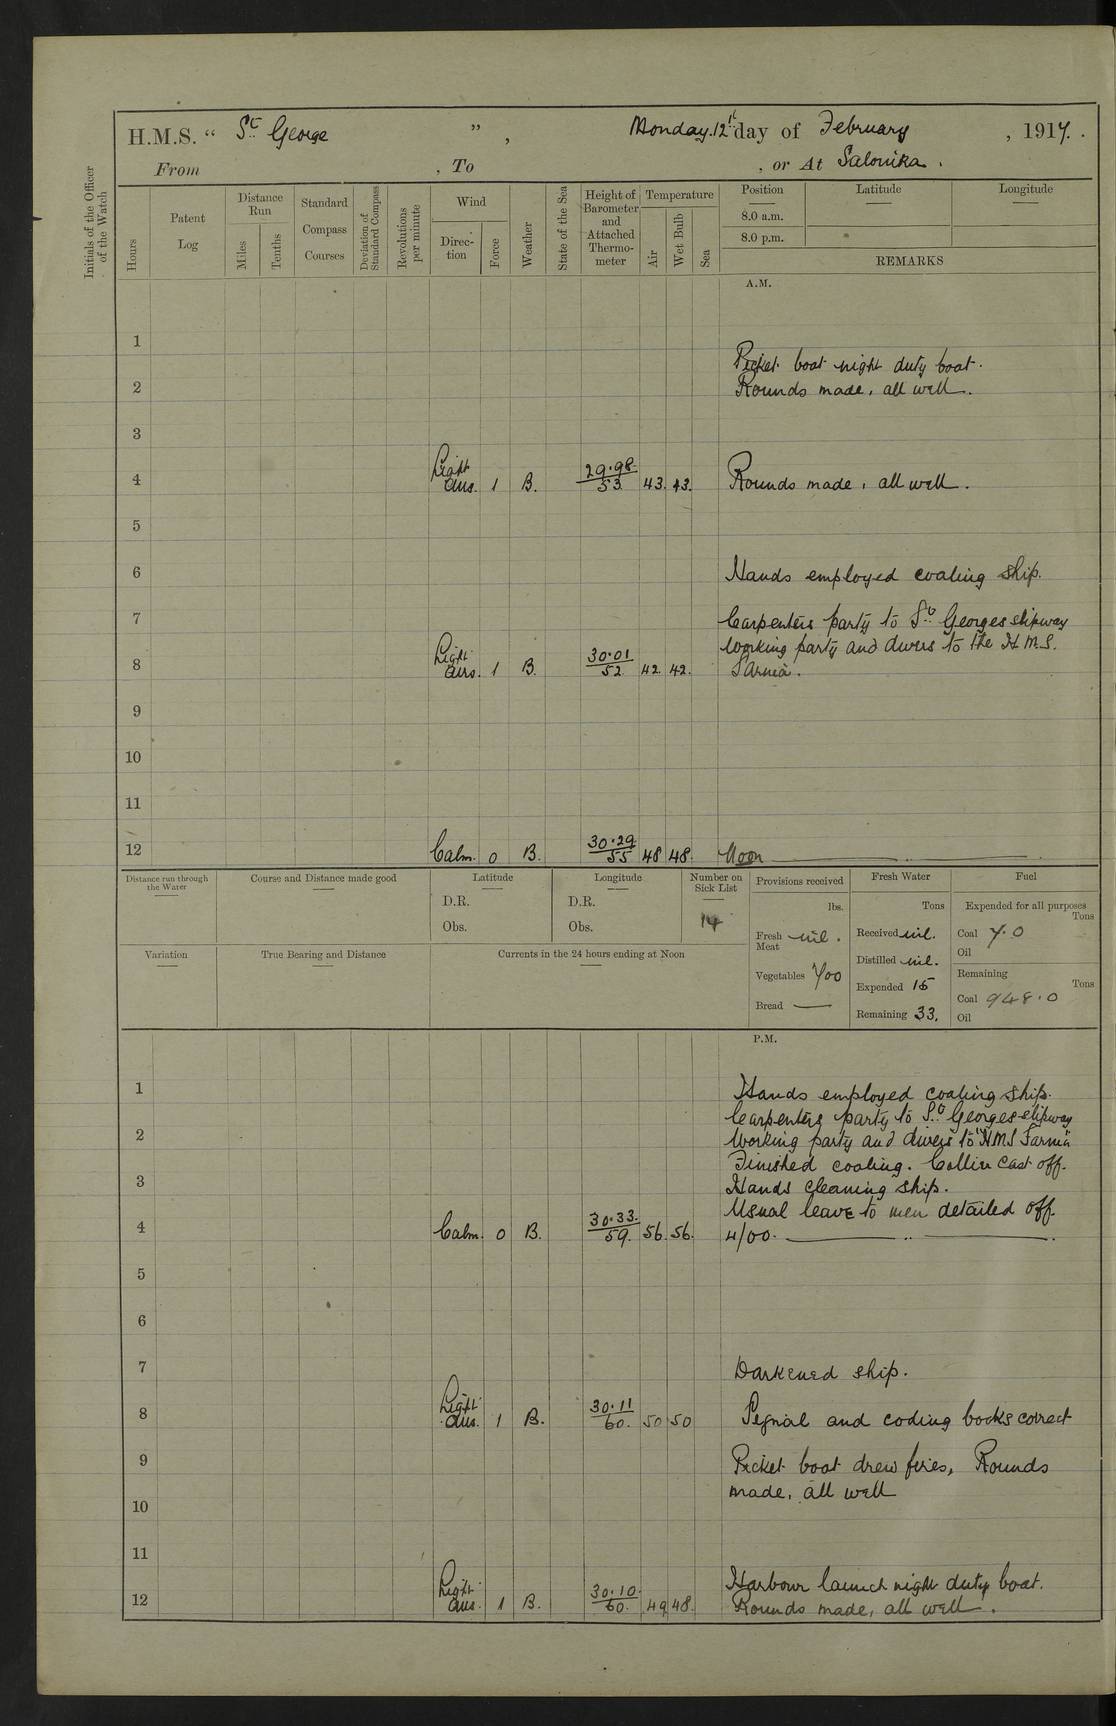 H.M.S. “ St George ” , Monday 12th day of February , 1917.
From , To , or At Salonika .
Initials of the Officer of the Watch
Hours
Patent Log
Distance Run
Miles
Tenths
Standard Compass Courses
Deviation of Standard Compass
Revolutions per minute
Wind
Direc-tion
Force
Weather
State of the Sea
Height of Barometer and Attached Thermo-meter
Temperature
Air
Wet Bulb
Sea
Position
Latitude
Longitude
8.0 a.m.
8.0 p.m.
REMARKS
A.M.
1
Picket boat night duty boat.
2 Rounds made, all well.
3
4 Light airs. 1 B. 29.98 53 43. 43. Rounds made, all well.
5
6 Hands employed coaling ship.
7 Carpenters party to St Georges slipway
working party and divers to the H.M.S.
8 Light airs. 1 B. 30.01 52 42 42. Sarnia.
9
10
11
12 Calm. 0 B. 30.29 55 48 48. Noon
Distance run through the Water
Course and Distance made good
Latitude
D.R.
Obs.
Longitude
D.R.
Obs.
Number on Sick List
14
Provisions received
lbs.
Fresh Meat nil.
Vegetables 700
Bread —
Fresh Water
Tons
Received nil.
Distilled nil.
Expended 15
Remaining 33.
Fuel
Expended for all purposes
Tons
Coal 7.0
Oil
Remaining
Tons
Coal 948.0
Oil
Variation
True Bearing and Distance
Currents in the 24 hours ending at Noon
P.M.
1 Hands employed coaling ship.
Carpenters party to St Georges slipway
2 Working party and divers to "HMS Sarnia"
Finished coaling. Collier cast off.
3 Hands cleaning ship.
Usual leave to men detailed off.
4 Calm. 0 B. 30.33. 59. 56. 56. 4/00.
5
6
7 Darkened ship.
8 Light airs. 1 B. 30.11 60. 50 50 Signal and coding books correct
9 Picket boat drew fires, Rounds
made, all well
10
11
Harbour launch night duty boat.
12 Light airs. 1 B. 30.10. 60. 49 48. Rounds made, all well.